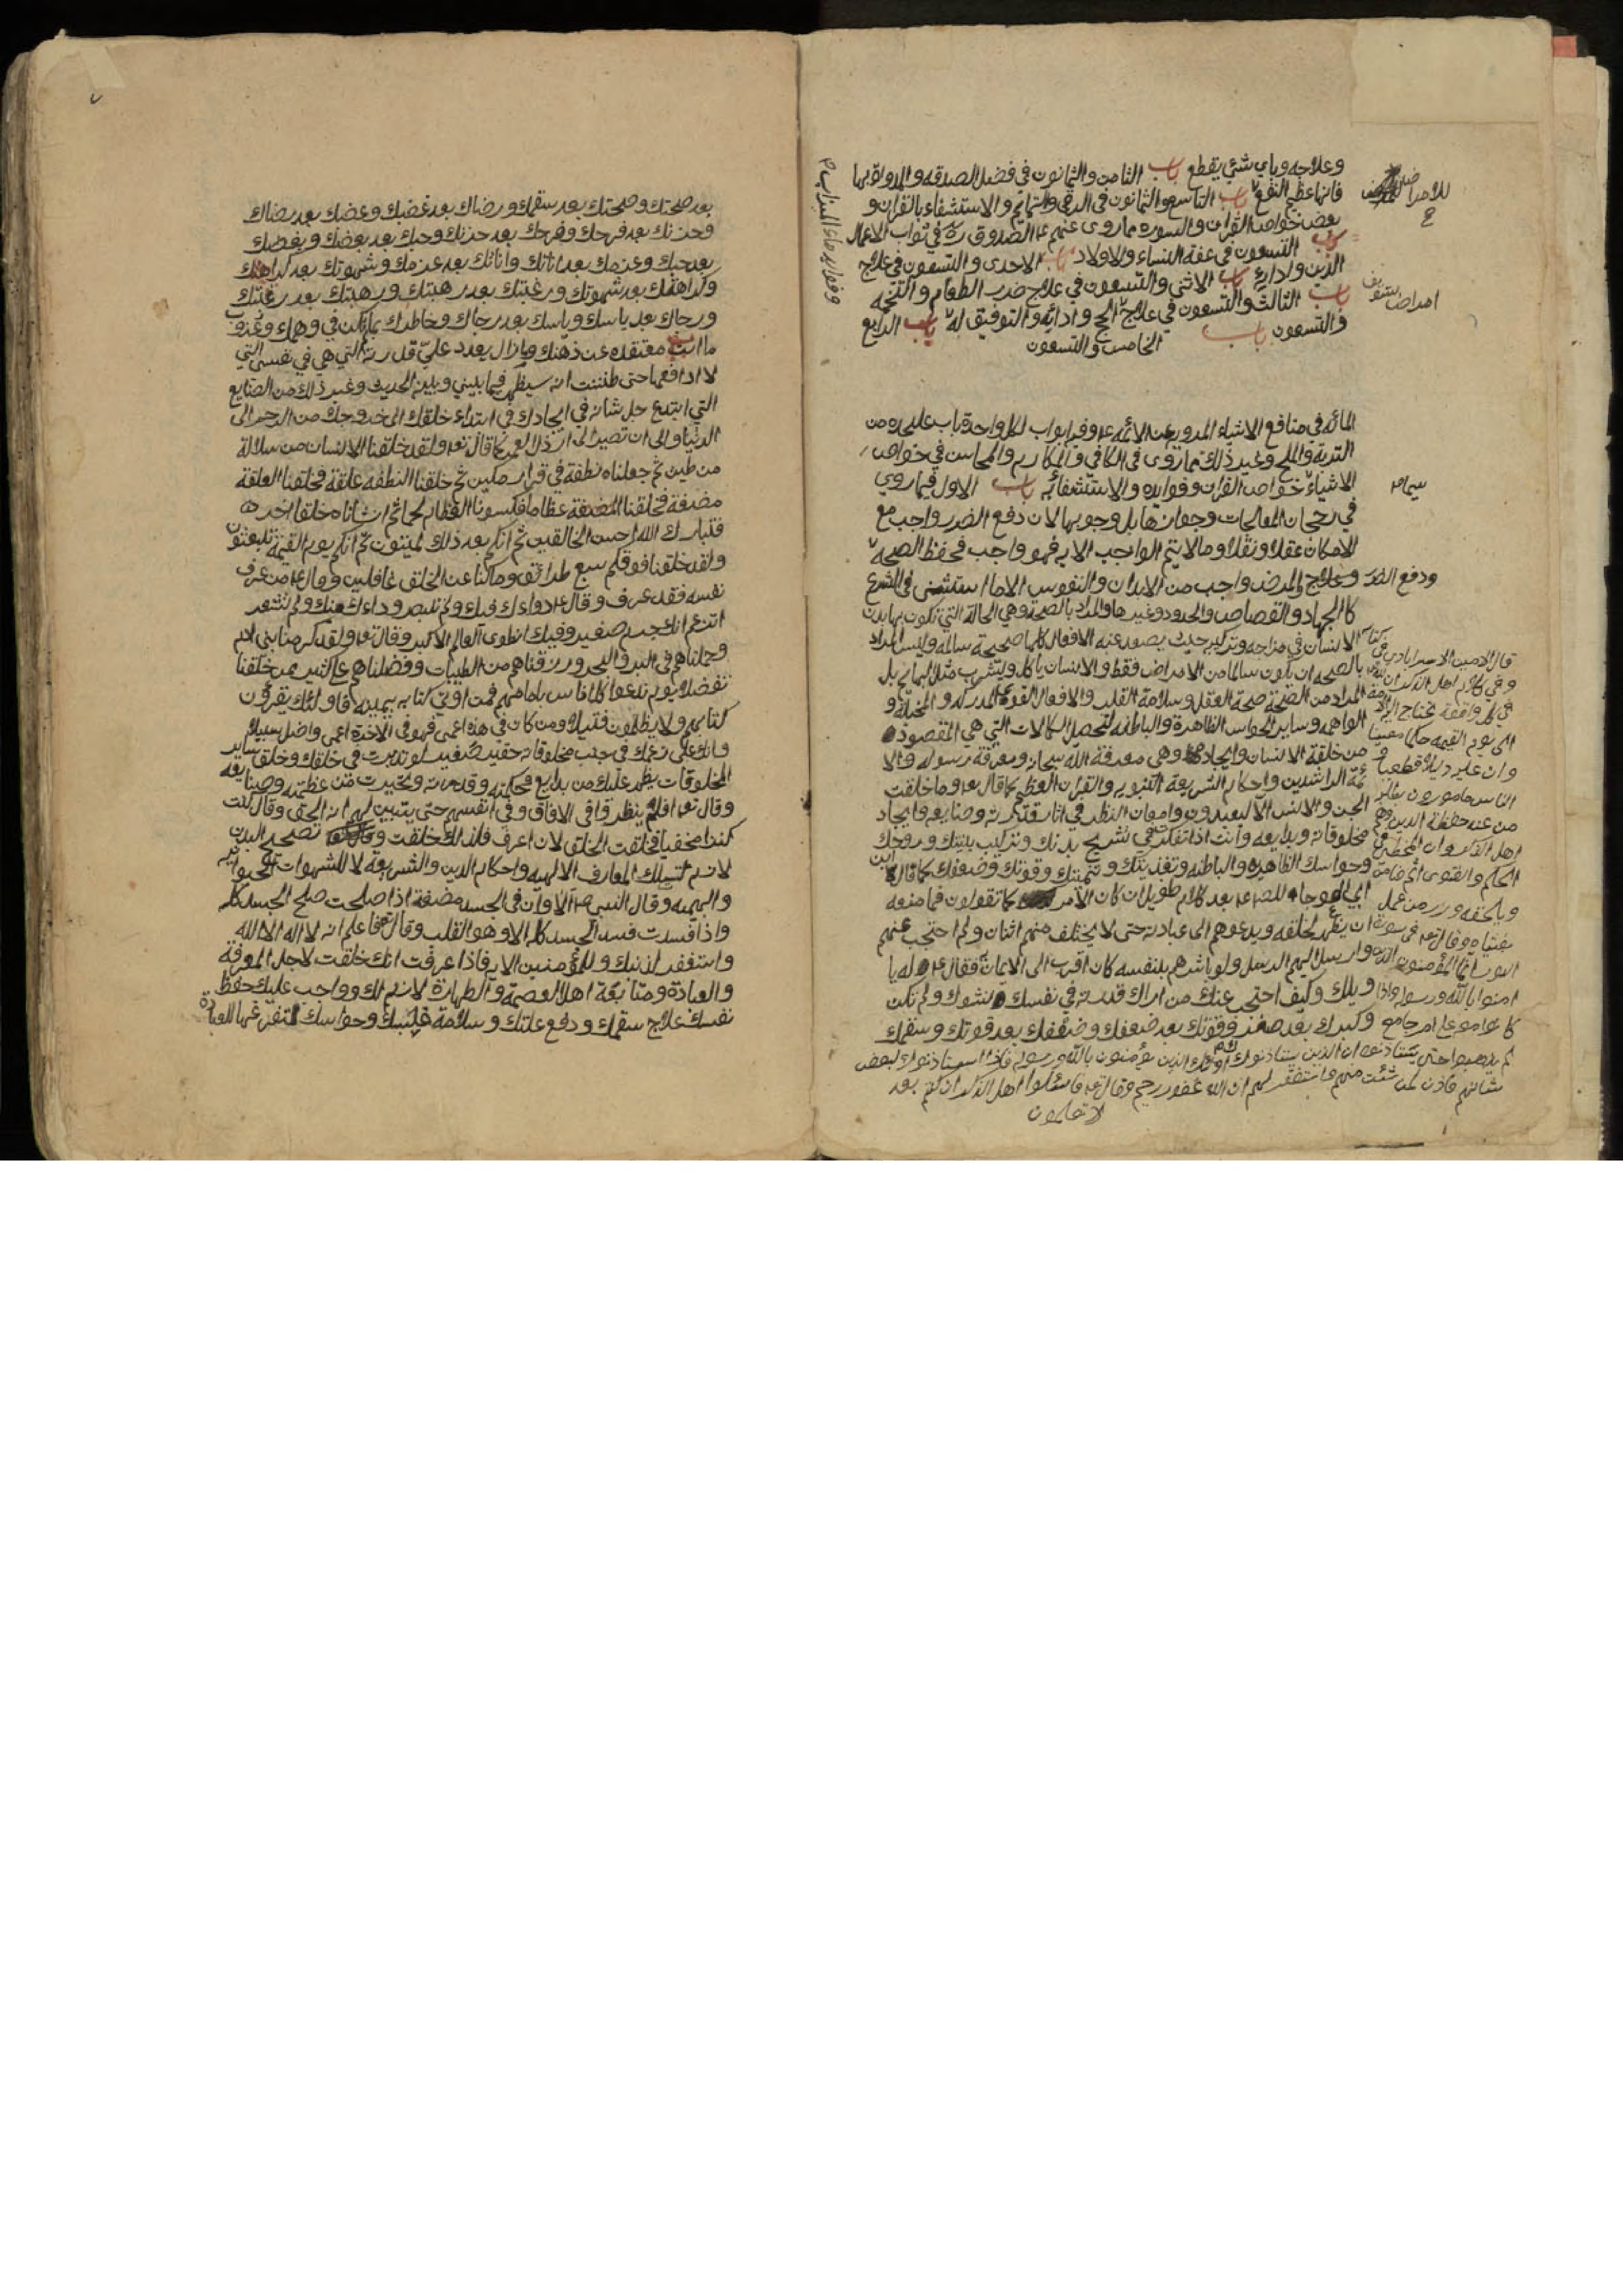 وعلاجه وباي شئ يقطع باب الثامن والثمانون في فضل الصدقه والمداواة بها
فانها عظيم النفع باب التاسع والثمانون في الرقي والتمايم والاستشفاء بالقران و
بعض خواص القران والسوره مما روى عنهم ع الصدوق ره في ثواب الاعمال
باب التسعون في عفة النساء والاولاد باب الاحدى والتسعون في علاج
الدين وادائه باب الاثنى والتسعون في علاج ضرر الطعام والتخمه
باب الثالث والتسعون في علاج الحج وادائه والتوفيق له باب الرابع
والتسعون باب الخامس والتسعون
المائه في منافع الاشياء المرويه عن الائمه ع وفيه ابواب لكل واحدة باب عليحده من
التربة والملح وغير ذلك مما روى في الكافي والمكارم والمحاسن في خواص
الاشياء خواص القران وفوايده والاستشفاء به باب الاول فيما روي
في رجحان المعالجات وجوازها بل وجوبها لان دفع الضرر واجب مع
الامكان عقلا ونقلا وما لا يتم الواجب الا به فهو واجب فحفظ الصحه
ودفع الضرر وعلاج المرض واجب من الابدان والنفوس الا ما استثنى في الشرع
كالجهاد والقصاص والحدود وغيرها والمراد بالصحة وهي الحالة التي تكون بها بدن
الانسان في مزاجه وتركيبه حيث يصدر عنه الافعال كلها صحيحة سالمه وليس المراد
بالصحه ان يكون سالما من الامراض فقط والانسان ياكل ويشرب مثل البهائم بل
المراد من الصحة صحة العقل وسلامة القلب والافعال القوه المدركه والمخيلة و
الواهمه وساير الحواس الظاهرة والباطنه لتحصل الكمالات التي هي المقصود
من خلقة الانسان وايجاده وهي معرفة الله سبحانه ومعرفة رسوله والا
ئمة الراشدين واحكام الشريعة النبويه والقران العظيم كما قال تع وما خلقت
الجن والانس الا ليعبدون وامعان النظر في اثار قدرته وصنايعه وايجاد
مخلوقاته وبدايعه وانت اذا تفكرت في تشريح بدنك وتركيب بنيتك وروحك
وحواسك الظاهره والباطنه وتغذيتك وتنميتك وقوتك وضعفك كما قال
ابن ابي العوجاء للص ع بعد كلام طويل ان كان الامر كما تقولون فما منعه
ان يظهر لخلقه ويدعوهم الى عبادته حتى لا يختلف منهم اثنان ولم احتجب عنهم
وارسل اليهم الرسل ولو باشرهم بنفسه كان اقرب الى الايمان فقال ع له يا
ويلك وكيف احتجب عنك من اراك قدرته في نفسك نشوك ولم تكن
وكبرك بعد صغر وقوتك بعد ضعفك وضعفك بعد قوتك وسقمك
للامراض
امراض
سيما
وفوايد ماء الميزاب
قال الامين الاسترابادي في
وفي كلام اهل الذكر ان لله
في كل واقعة تحتاج اليه الامة
الى يوم القيمه حكما معينا
وان عليه دليلا قطعيا و
الناس مامورون بطلبه
من عند حفظة الدين وهم
اهل الذكر وان المخطئ في
الحكم والفتوى اثم ضامن
ويلحقه وزر من عمل
بفتياه وقال تع في سورة
النور انما المؤمنون الذين
امنوا بالله ورسوله واذا
كانوا معه على امر جامع
لم يذهبوا حتى يستاذنوه ان الذين يستاذنونك اولئك الذين يؤمنون بالله ورسوله فاذا استاذنوك لبعض
شانهم فاذن لمن شئت منهم واستغفر لهم ان الله غفور رحيم وقال تع فاسئلوا اهل الذكر ان كنتم
لا تعلمون
بعد صحتك وصحتك بعد سقمك ورضاك بعد غضبك وغضبك بعد رضاك
وحزنك بعد فرحك وفرحك بعد حزنك وحبك بعد بغضك وبغضك
بعد حبك وعزمك بعد اناتك واناتك بعد عزمك وشهوتك بعد كراهتك
وكراهتك بعد شهوتك ورغبتك بعد رهبتك ورهبتك بعد رغبتك
ورجاك بعد ياسك وياسك بعد رجاك وخاطرك بما لم يكن في وهمك وعزوب
ما انت معتقده عن ذهنك وما زال يعدد علي قدرته التي هي في نفسي التي
لا ادفعها حتى ظننت انه سيظهر فيما بيني وبينه الحديث وغير ذلك من الصنايع
التي ابتدع جل شانه في ايجادك في ابتداء خلقك الى خروجك من الرحم الى
الدنيا والى ان تصير الى ارذل العمر كما قال تع ولقد خلقنا الانسان من سلالة
من طين ثم جعلناه نطفة في قرار مكين ثم خلقنا النطفة علقة فخلقنا العلقة
مضغة فخلقنا المضغة عظاما فكسونا العظام لحما ثم انشاناه خلقا اخر
فتبارك الله احسن الخالقين ثم انكم بعد ذلك لميتون ثم انكم يوم القيمة تبعثون
ولقد خلقنا فوقكم سبع طرائق وما كنا عن الخلق غافلين وقال ع من عرف
نفسه فقد عرف وقال ع دواءك فيك ولم تبصر وداءك منك ولم تشعر
اتزعم انك جسم صغير وفيك انطوى العالم الاكبر وقال تع ولقد كرمنا بني ادم
وحملناهم في البر والبحر ورزقناهم من الطيبات وفضلناهم على كثير ممن خلقنا
تفضيلا يوم ندعوا كل اناس بامامهم فمن اوتي كتابه بيمينه فاولئك يقرؤن
كتابهم ولا يظلمون فتيلا ومن كان في هذه اعمى فهو في الاخرة اعمى واضل سبيلا
وانك على زعمك في جنب مخلوقاته حقير صغير لو تدبرت في خلقك وخلق ساير
المخلوقات يظهر عليك من بدايع حكمته وقدرته وتحيرت من عظمته وصنايعه
وقال تع افلم ينظروا في الافاق وفي انفسهم حتى يتبين لهم انه الحق وقال كنت
كنزا مخفيا فخلقت الخلق لان اعرف فلذلك خلقت تصحيح البدن
لازم لتلك المعارف الالهيه واحكام الدين والشريعة لا للشهوات الحيوانيه
والبهيميه وقال النبي ص الا وان في الجسد مضغة اذا صلحت صلح الجسد كله
واذا فسدت فسد الجسد كله الا وهو القلب وقال تع فاعلم انه لا اله الا الله
واستغفر لذنبك وللمؤمنين الايه فاذا عرفت انك خلقت لاجل المعرفة
والعبادة ومتابعة اهل العصمة والطهارة لازم لك وواجب عليك حفظ
نفسك علاج سقمك ودفع علتك وسلامة قلبك وحواسك لتفرغها للعبادة